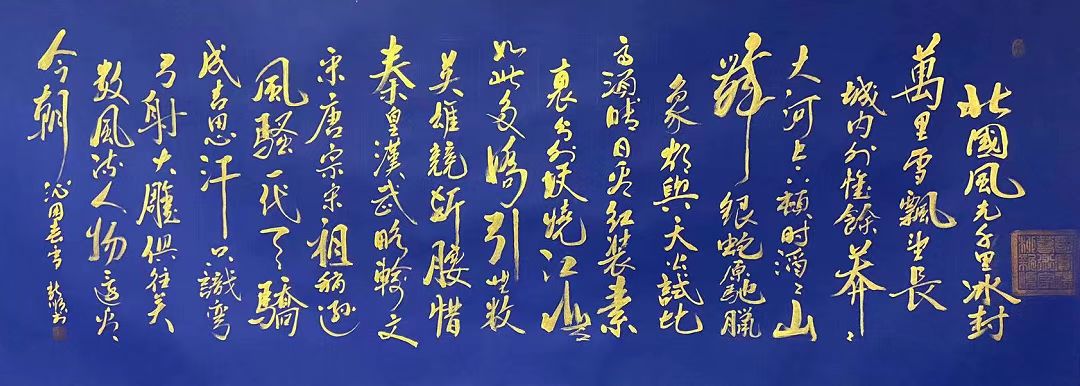 北國風光千里冰封
萬里雪飄望長
城内外惟餘莽〻
大河上下頓时滔〻山
舞銀蛇原馳臘
象欲與天公試比
高須晴日看红装素
裹分外妖嬈江山
如此多嬌引無数
英雄競折腰惜
秦皇漢武略輸文
采唐宗宋祖稍遜
風騷一代天驕
成吉思汗只識彎
弓射大雕俱往矣
数風流人物還看
今朝
沁园春雪